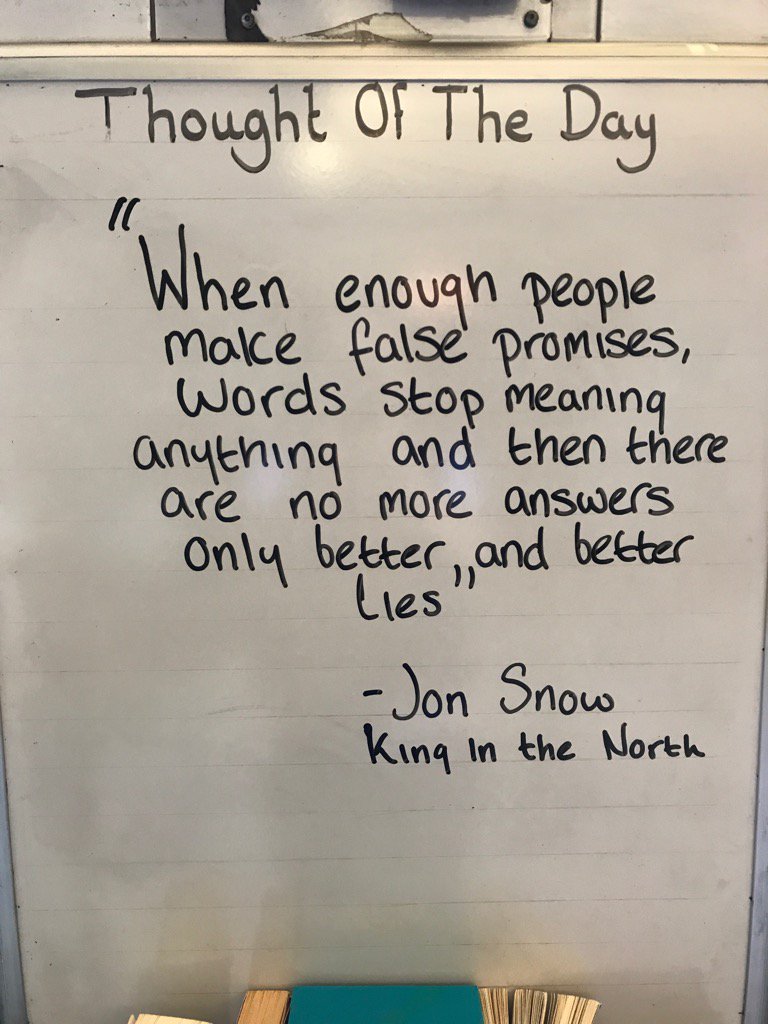 Thought Of The Day
"When enough people
make false promises,
words stop meaning
anything and then there
are no more answers
only better, and better
lies"
-Jon Snow
King in the North